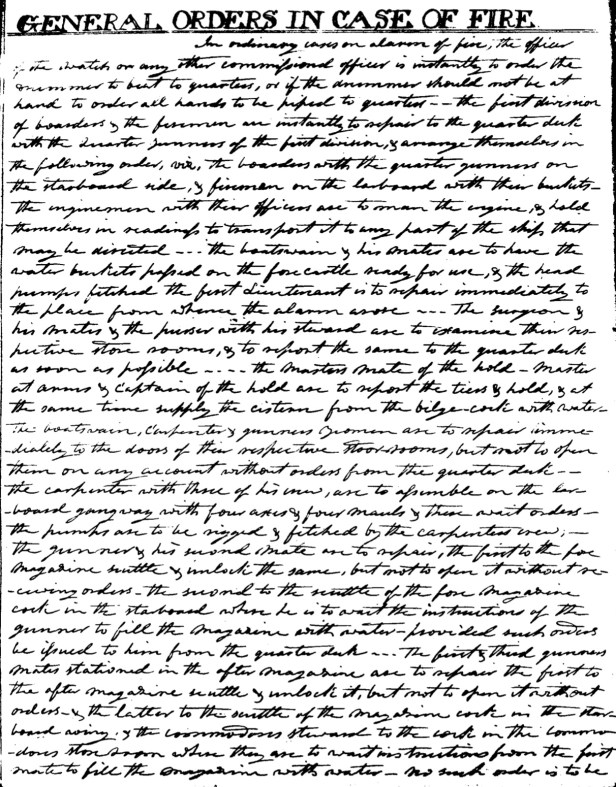 GENERAL ORDERS IN CASE OF FIRE
In ordinary cases on alarm of fire, the officer
of the watch or any other commissional officer is instantly to order the
drummer to beat to quarters, or if the drummer should not be at
hand to order all hands to be piped to quarters -- the first division
of boarders & the firemen are instantly to repair to the quarter deck
with the Quarter Gunners of the first division, & arrange themselves in
the following order, viz, the boarders with the quarter gunners on
the starboard side, & firemen on the larboard with their buckets -
the enginemen with their officers are to man the engine, & hold
themselves in readiness to transport it to any part of the ship that
may be directed --- the boatswain & his mates are to have the
water buckets passed on the forecastle ready for use, & the head
pumps fetched the first Lieutenant is to repair immediately to
the place from whence the alarm arose --- The surgeon &
his mates & the purser with his steward are to examine their res-
pective store rooms, & to report the same to the quarter deck
as soon as possible ---- the masters mate of the hold - master
at arms & Captain of the hold are to report the tiers & hold, & at
the same time supply the cistern from the bilge-cock with water-
The boatswain, Carpenter & gunners Yeomen are to repair imme-
-diately to the doors of their respective Storerooms, but not to open
them on any account without orders from the quarter deck --
the carpenter with those of his crew, are to assemble on the lar-
board gangway with four axes & four mauls & there wait orders -
the pumps are to be rigged & fetched by the carpenters crew; -
the gunner & his second mate are to repair, the first to the fore
magazine scuttle & unlock the same, but not to open it without re-
-ceiving orders - the second to the scuttle of the fore magazine
cock in the starboard where he is to wait the instructions of the
gunner to fill the magazine with water - provided such orders
be issued to him from the quarter deck --- The first & third gunners
mates stationed in the after magazine are to repair the first to
the after magazine scuttle & unlock it, but not to open it without
orders - & the latter to the scuttle of the magazine cock in the star-
board wing, & the commodores steward to the cock in the commo-
-dores store room where they are to wait instructions from the first
mate to fill the magazine with water - no such order is to be